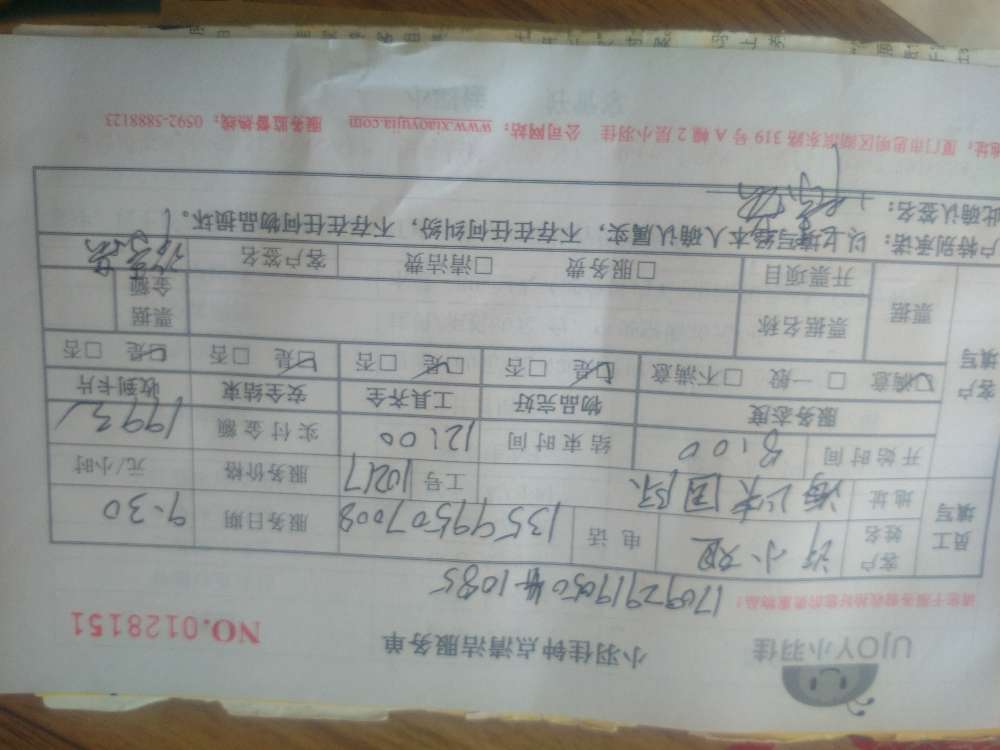 UJOY小羽佳
小羽佳钟点清洁服务单
NO.0128151
请您于服务前收拾好您的贵重物品!
员工填写
客户姓名 许小姐 电话 13599507008 服务日期 9.30
地址 海上国际 工号 10217 服务价格 元/小时
开始时间 8:00 结束时间 12:00 实付金额
客户填写
服务态度 物品完好 工具齐全 安全结束 收到卡片
☑满意 □一般 □不满意 ☑是 □否 ☑是 □否 ☑是 □否 ☑是 □否
票据 票据名称 票据金额
开票项目 □服务费 □清洁费 客户签名
户特别承诺:以上填写经本人确认属实,不存在任何纠纷,不存在任何物品损坏。
此确认签名:
地址:厦门市思明区湖滨东路319号A幢2层小羽佳 公司网站:www.xiaoyujia.com 服务监督热线:0592-5888123